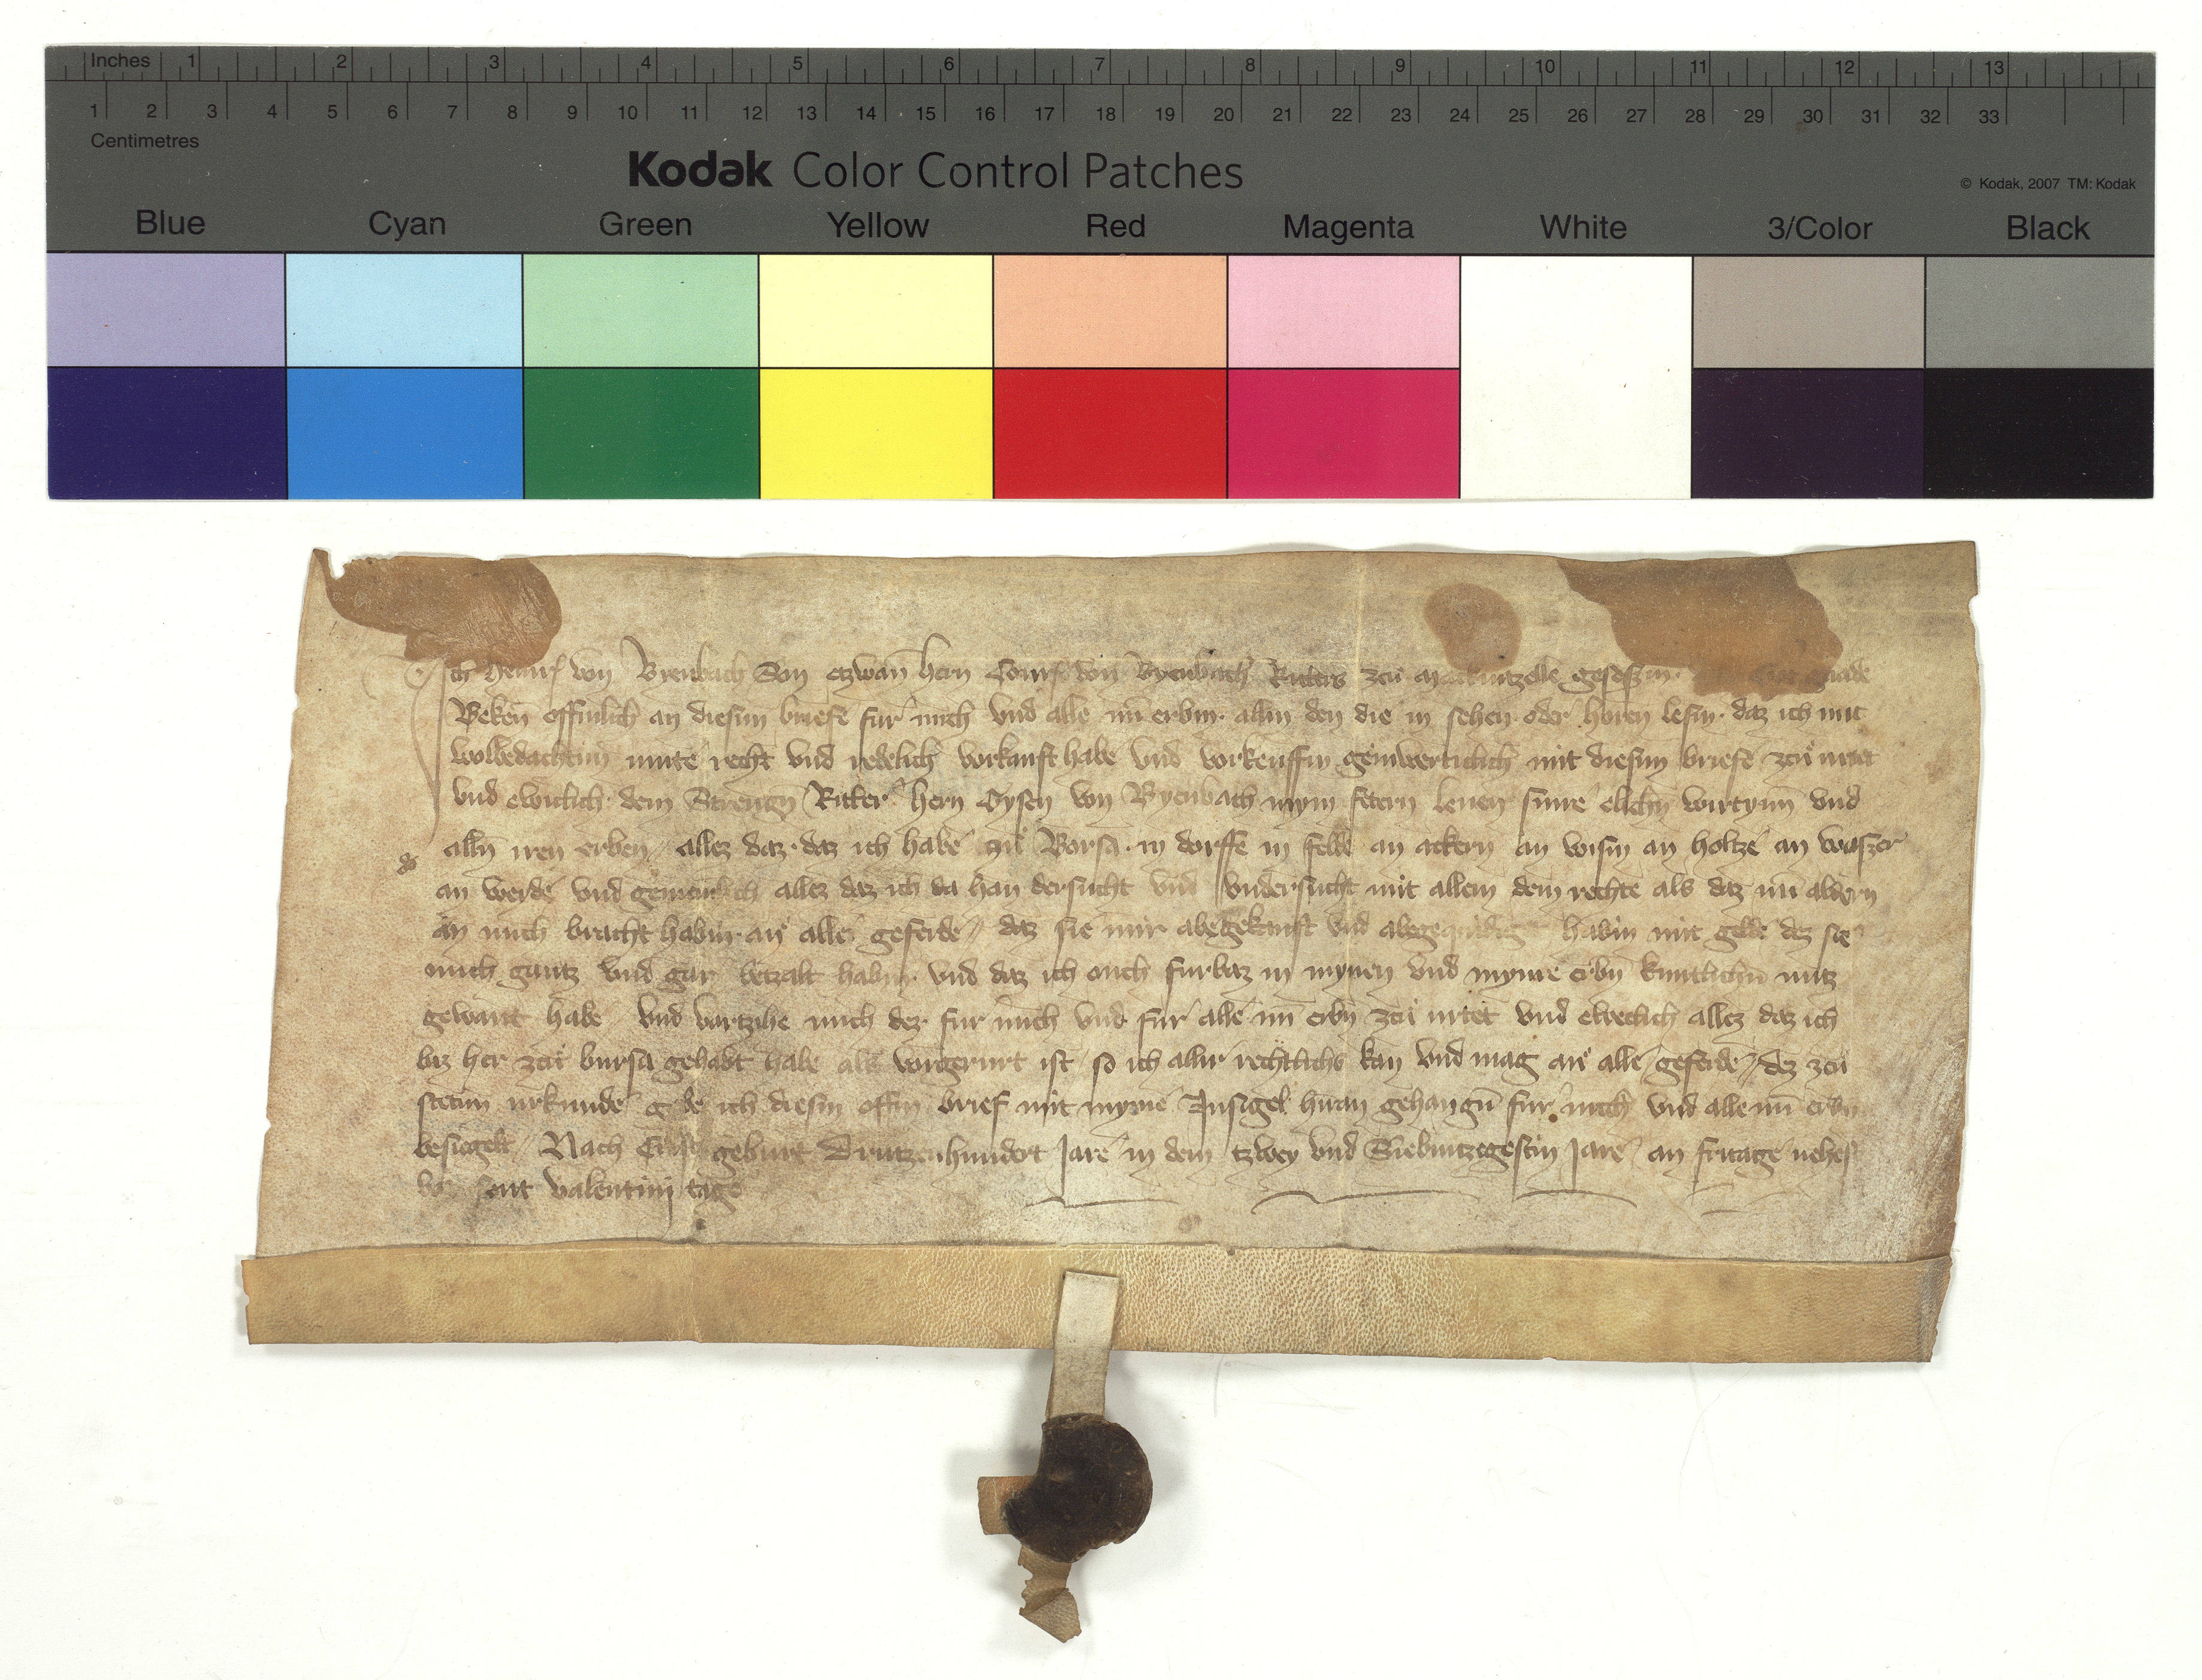 Inches 1 2 3 4 5 6 7 8 9 10 11 12 13
1 2 3 4 5 6 7 8 9 10 11 12 13 14 15 16 17 18 19 20 21 22 23 24 25 26 27 28 29 30 31 32 33
Centimetres
Kodak Color Control Patches
© Kodak, 2007 TM: Kodak
Blue Cyan Green Yellow Red Magenta White 3/Color Black
Ich Heinr von Byenbach Son etzwan hern Conr von Byenbach Ritters zcu Mackintzelle geseszin
Beken offinlich an diesim briefe fur mich vnd alle min erbin allin den die in sehen oder horen lesin daz ich mit
wolbedachtim mute recht vnd redelich vorkauft habe vnd vorkeuffin geinwerticlich mit diesim briefe zcu urtet
vnd ewiclich dem Strengin Ritter hern Gysen von Byenbach mym fetern Lenen sinre elichin wirtynn vnd
alln iren erben allez daz daz ich habe zu Borsa in dorffe in felde an ackern an wisin an holtze an waszer
an werde vnd gemeinlich allez daz ich da han dersucht vnd vndersucht mit allem dem rechte als daz min aldern
an mich bracht habin an alle geferde daz sie mir abegekauft vnd habin mit gelde dez sie
mich gantz vnd gar betzalt habin vnd daz ich ouch furbaz in mynen vnd mynre erbin kuntlichin nutz
gewant habe vnd vortzihe mich dez fur mich vnd fur alle min erbin zcu urtet vnd eweclich allez daz ich
biz her zcu bursa gehabt habe als vorgerurt ist so ich allir rechtlichs kan vnd mag an alle geferde dez zcu
stetim urkunde gebe ich diesin offin brief mit myme Insigel hiran gehangin fur mich vnd alle min erbin
besiegelt Nach Crists geburt Drutzenhundert Jare in dem tzwey vnd Siebintzegestin Jare an fritage nehest
sent valentini tage